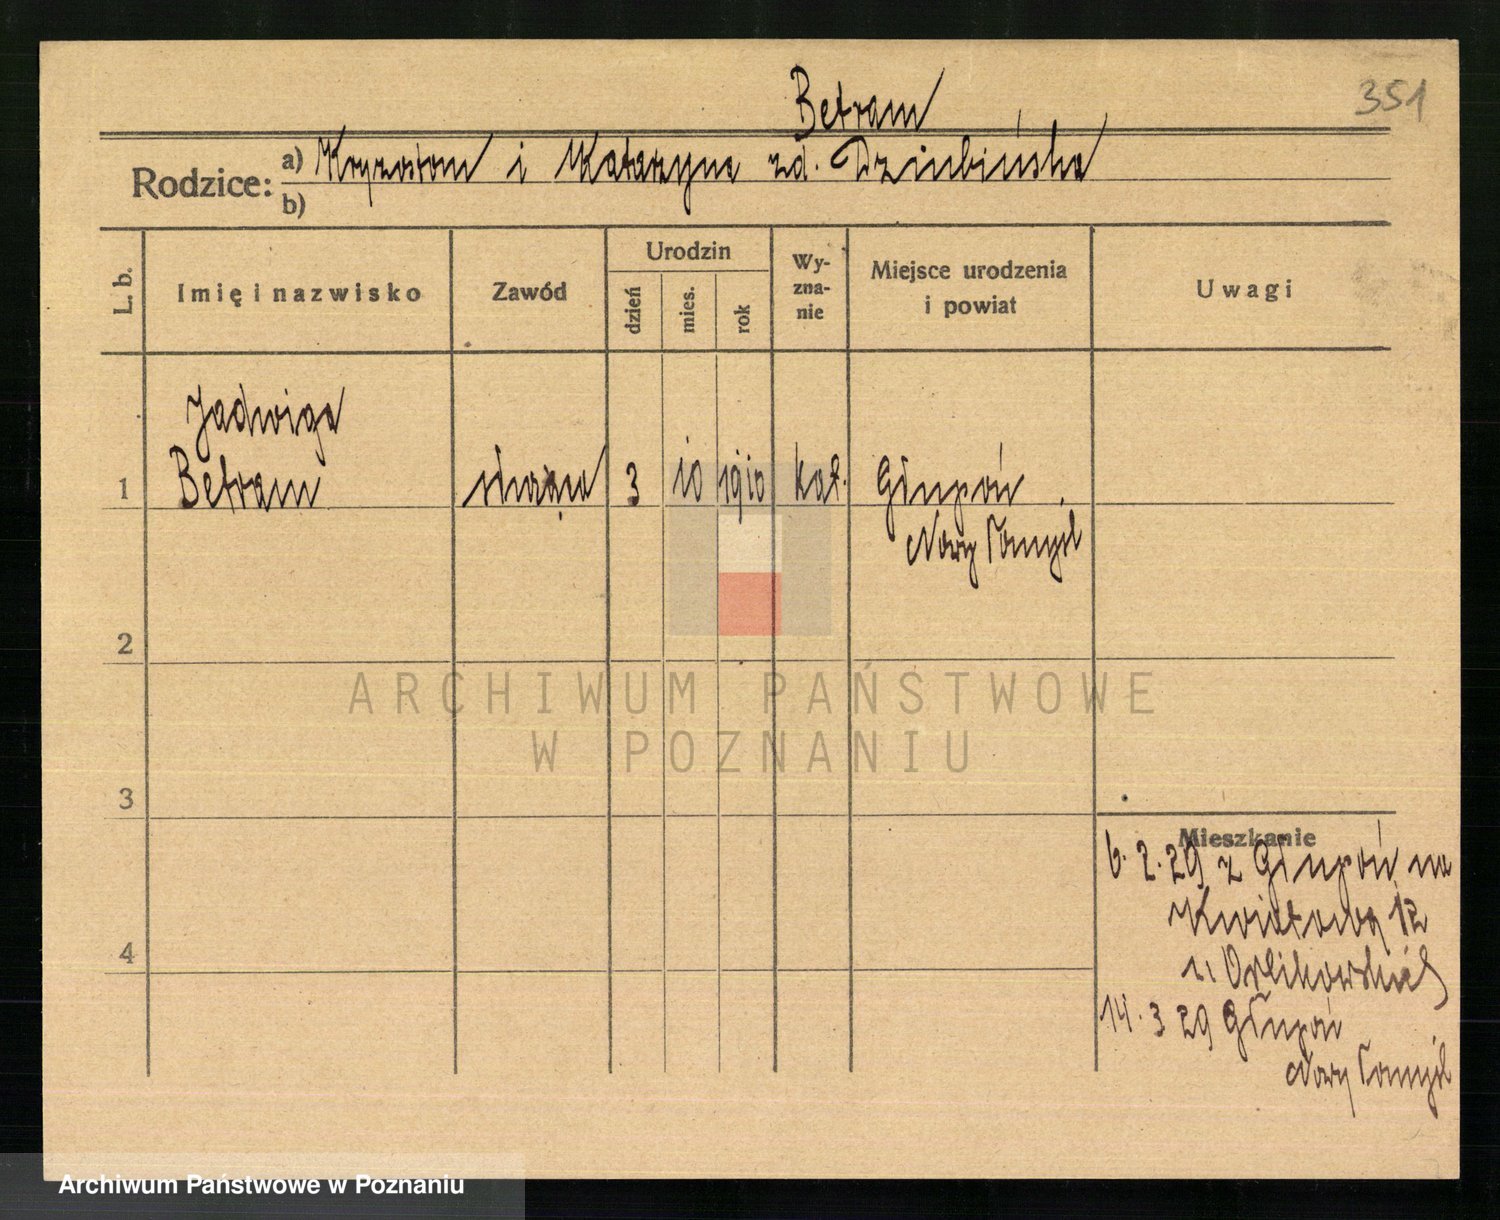 351
Betram
Rodzice: a) Kryzostom i Katarzyna zd. Dziubińska
b)
L. b.
Imię i nazwisko
Zawód
Urodzin
dzień
mies.
rok
Wy-
zna-
nie
Miejsce urodzenia
i powiat
Uwagi
Jadwiga
1 Betram służąca 3 10 1910 kat. Głupoń
Nowy Tomyśl
2
ARCHIWUM PAŃSTWOWE
W POZNANIU
3
Mieszkanie
6. 2. 29 z Głupoń na
Kwiatową 12
u Orlikowskich
4
14. 3 29 Głupoń
Nowy Tomyśl
Archiwum Państwowe w Poznaniu